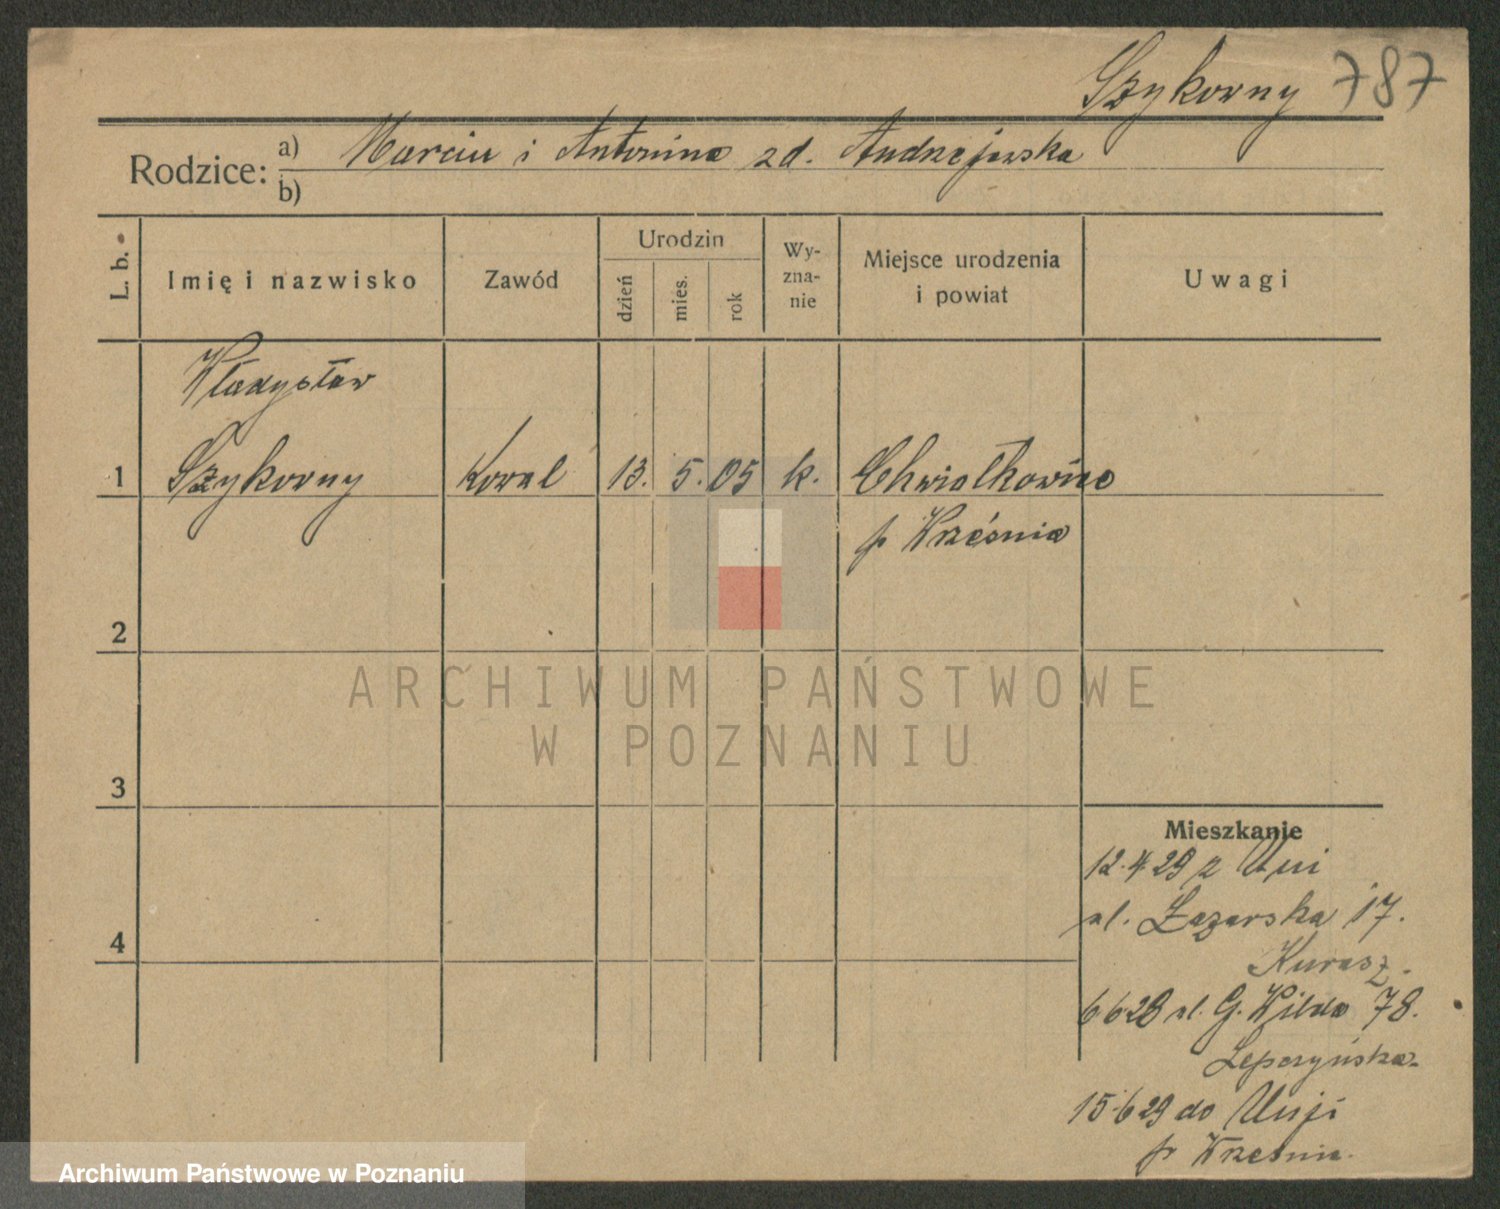 Szykowny 787
Rodzice: a) Marcin i Antonina z d. Andrzejewska
b)
L. b. Imię i nazwisko Zawód Urodzin dzień mies. rok Wy-zna-nie Miejsce urodzenia i powiat Uwagi
Władysław
1 Szykowny Kowal 13. 5. 05 k. Chwiałkowice
p Września
2
3
4
Mieszkanie
12.4 29 z Unii
ul. Łazarska 17.
Kurasz.
6 6 29 ul. G. Wilda 78.
Lepczyńska.
15 6 29 do Unji
p Września.
ARCHIWUM PAŃSTWOWE
W POZNANIU
Archiwum Państwowe w Poznaniu